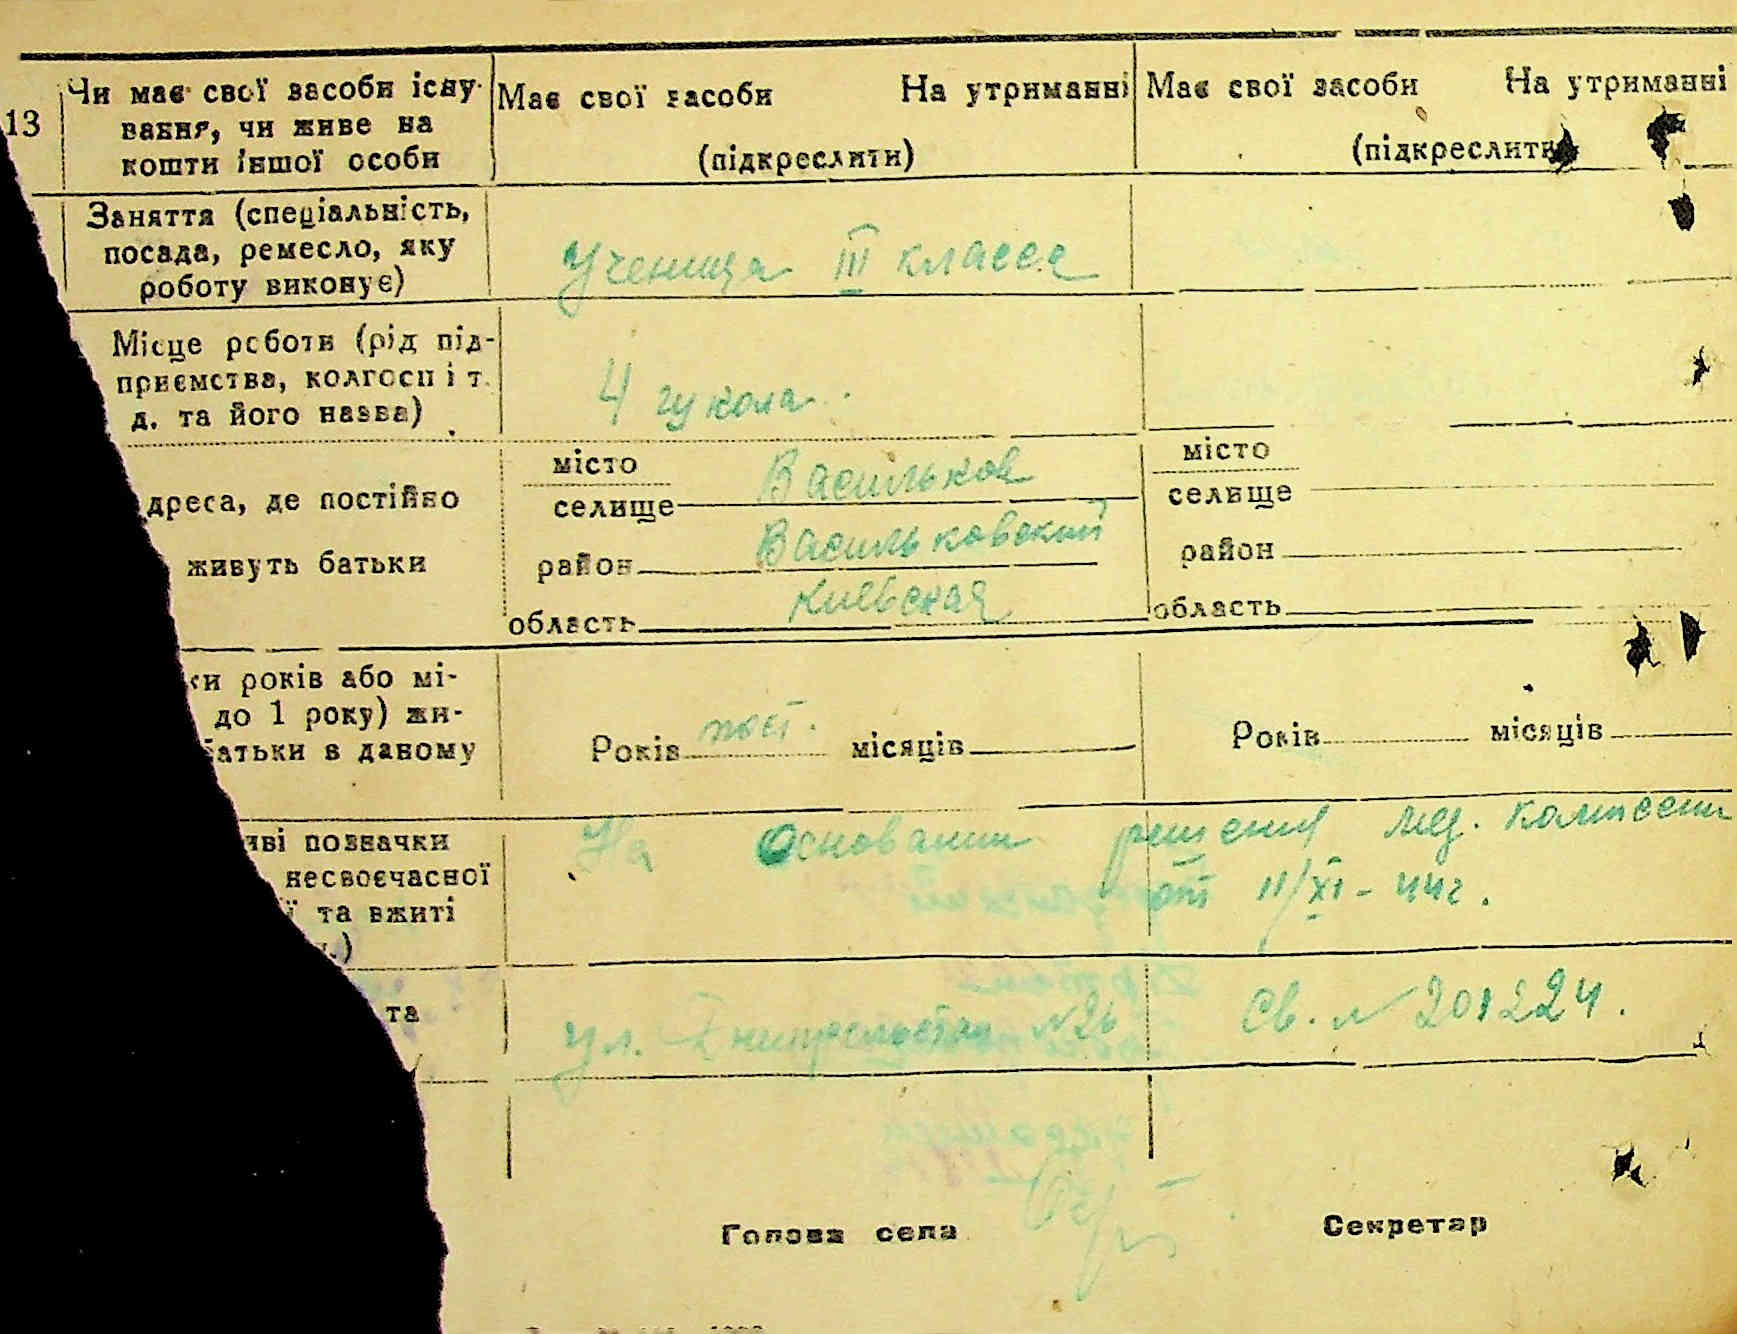 13
Чи має свої засоби існу-
вання, чи живе на
кошти іншої особи
Має свої засоби На утриманні
(підкреслити)
Має свої засоби На утриманні
(підкреслити)
Заняття (спеціальність,
посада, ремесло, яку
роботу виконує)
Ученица III класса
Місце роботи (рід під-
приємства, колгосп і т.
д. та його назва)
4 школа
дреса, де постійно
живуть батьки
місто
селище Васильков
район Васильковский
область Киевская
місто
селище
район
область
ки років або мі-
до 1 року) жи-
батьки в даному
Років пост. місяців
Років місяців
иві позначки
несвоєчасної
ї та вжиті
.)
На основании решения мед. комиссии
от 11/XI-44г.
та
ул. № 26
Св. № 201224.
Голова села
Секретар